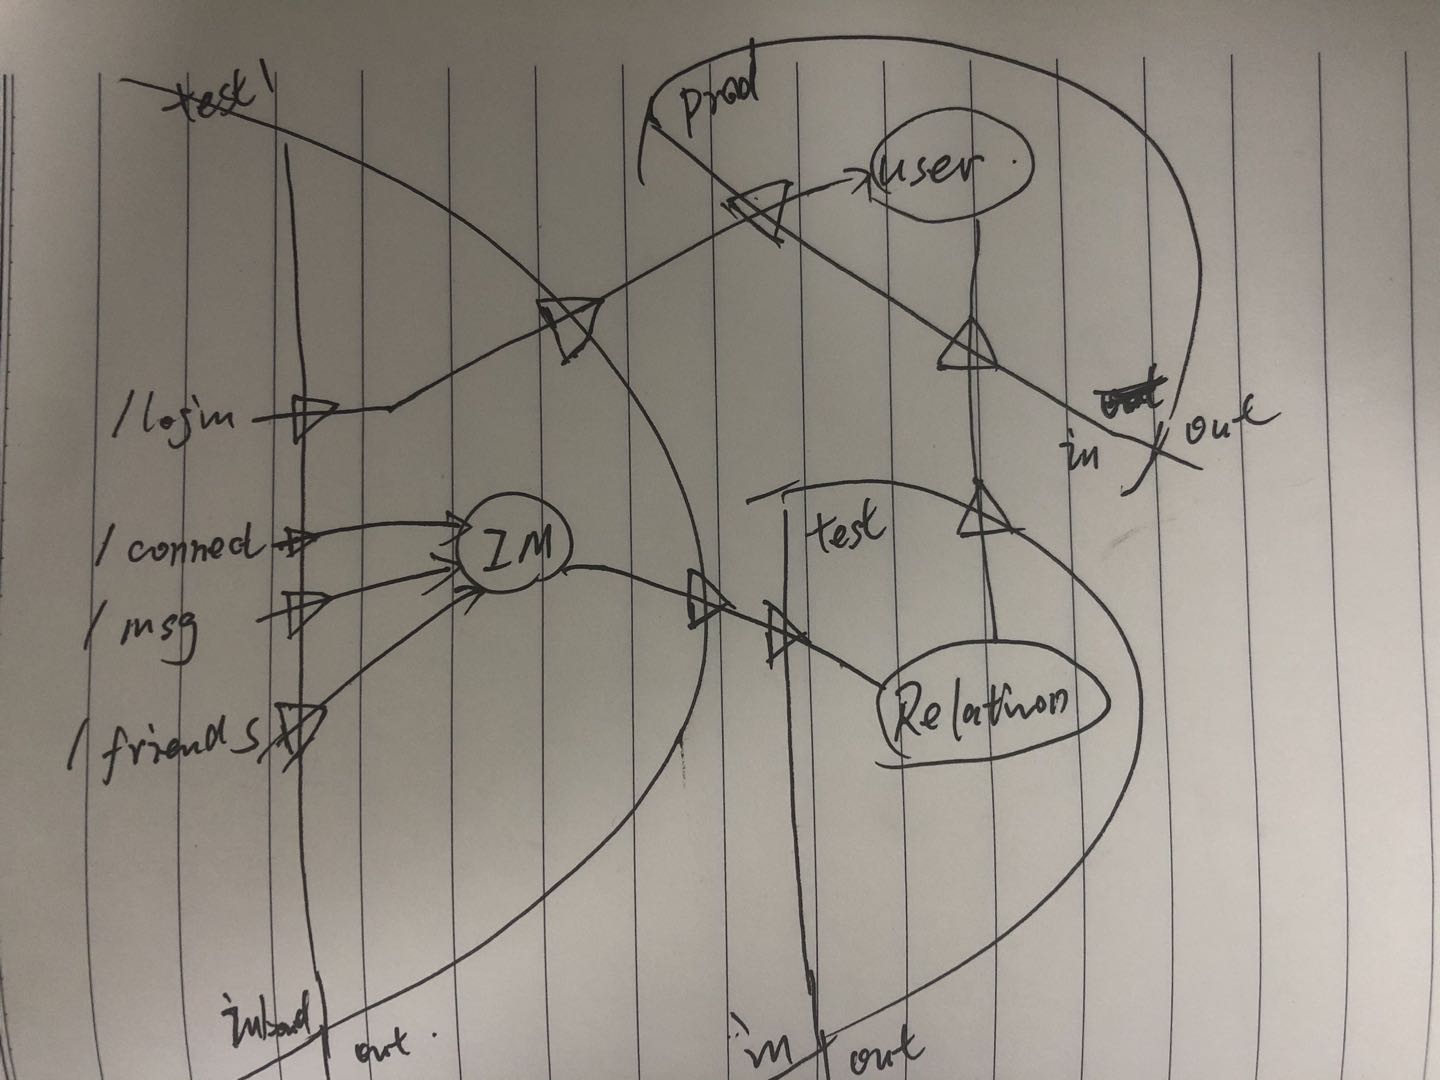 test'
prod
user.
/login
out
in
test
/conned
IM
/msg
Relatinon
/friends
inbond
out.
in
out